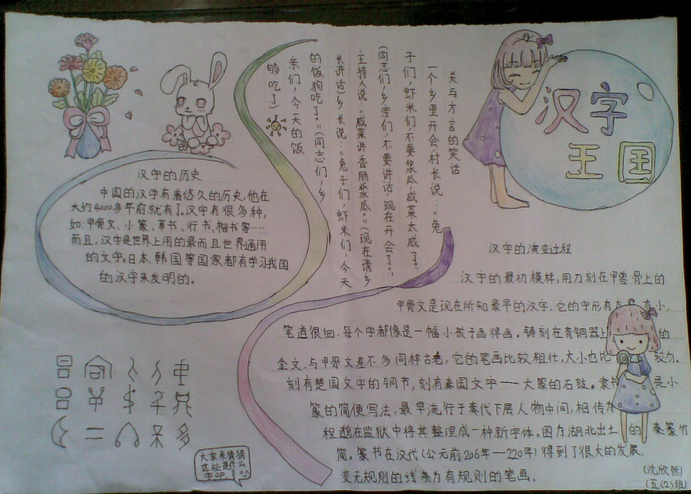 汉字
王国
关与方言的笑话
一个乡里开会,村长说:“兔
子们,虾米们,不要浆瓜,咸菜太咸了。”
(同志们,乡里们,不要讲话,现在开会了。)
主持人说:“咸菜请香肠浆瓜。”(现在请乡
长讲话)乡长说:“兔子们,虾米们,今天
的饭狗吃了。”(同志们,乡
亲们,今天的饭
够吃了)
汉字的历史
中国的汉字有着悠久的历史,他在
大约4000多年前就有了,汉字有很多种,
如:甲骨文、小篆、草书、行书、楷书等…
而且,汉字是世界上用的最而且世界通用
的文字。日本、韩国等国家都有学习我国
的汉字来发明的。
汉字的演变过程
汉字的最初模样,用刀刻在甲兽骨上的
甲骨文是现在所知最早的汉字,它的字形有大有小,
笔道很细,每个字都像是一幅小孩子画得画。铸刻在青铜器上的
金文,与甲骨文差不多同样古老,它的笔画比较粗壮,大小也比较匀。
刻有楚国文字的铜节,刻有秦国文字——大篆的石鼓。隶书是小
篆的简便写法,最早流行于秦代下层人物中间,相传
程邈在监狱中将其整理成一种新字体。因为湖北出土的秦篆竹
简。篆书在汉代(公元前206年—220年)得到了很大的发展。
变无规则的线条为有规则的笔画。
大家来猜猜
这些是什么
字吧
(沈欣然)
(五(2)班)